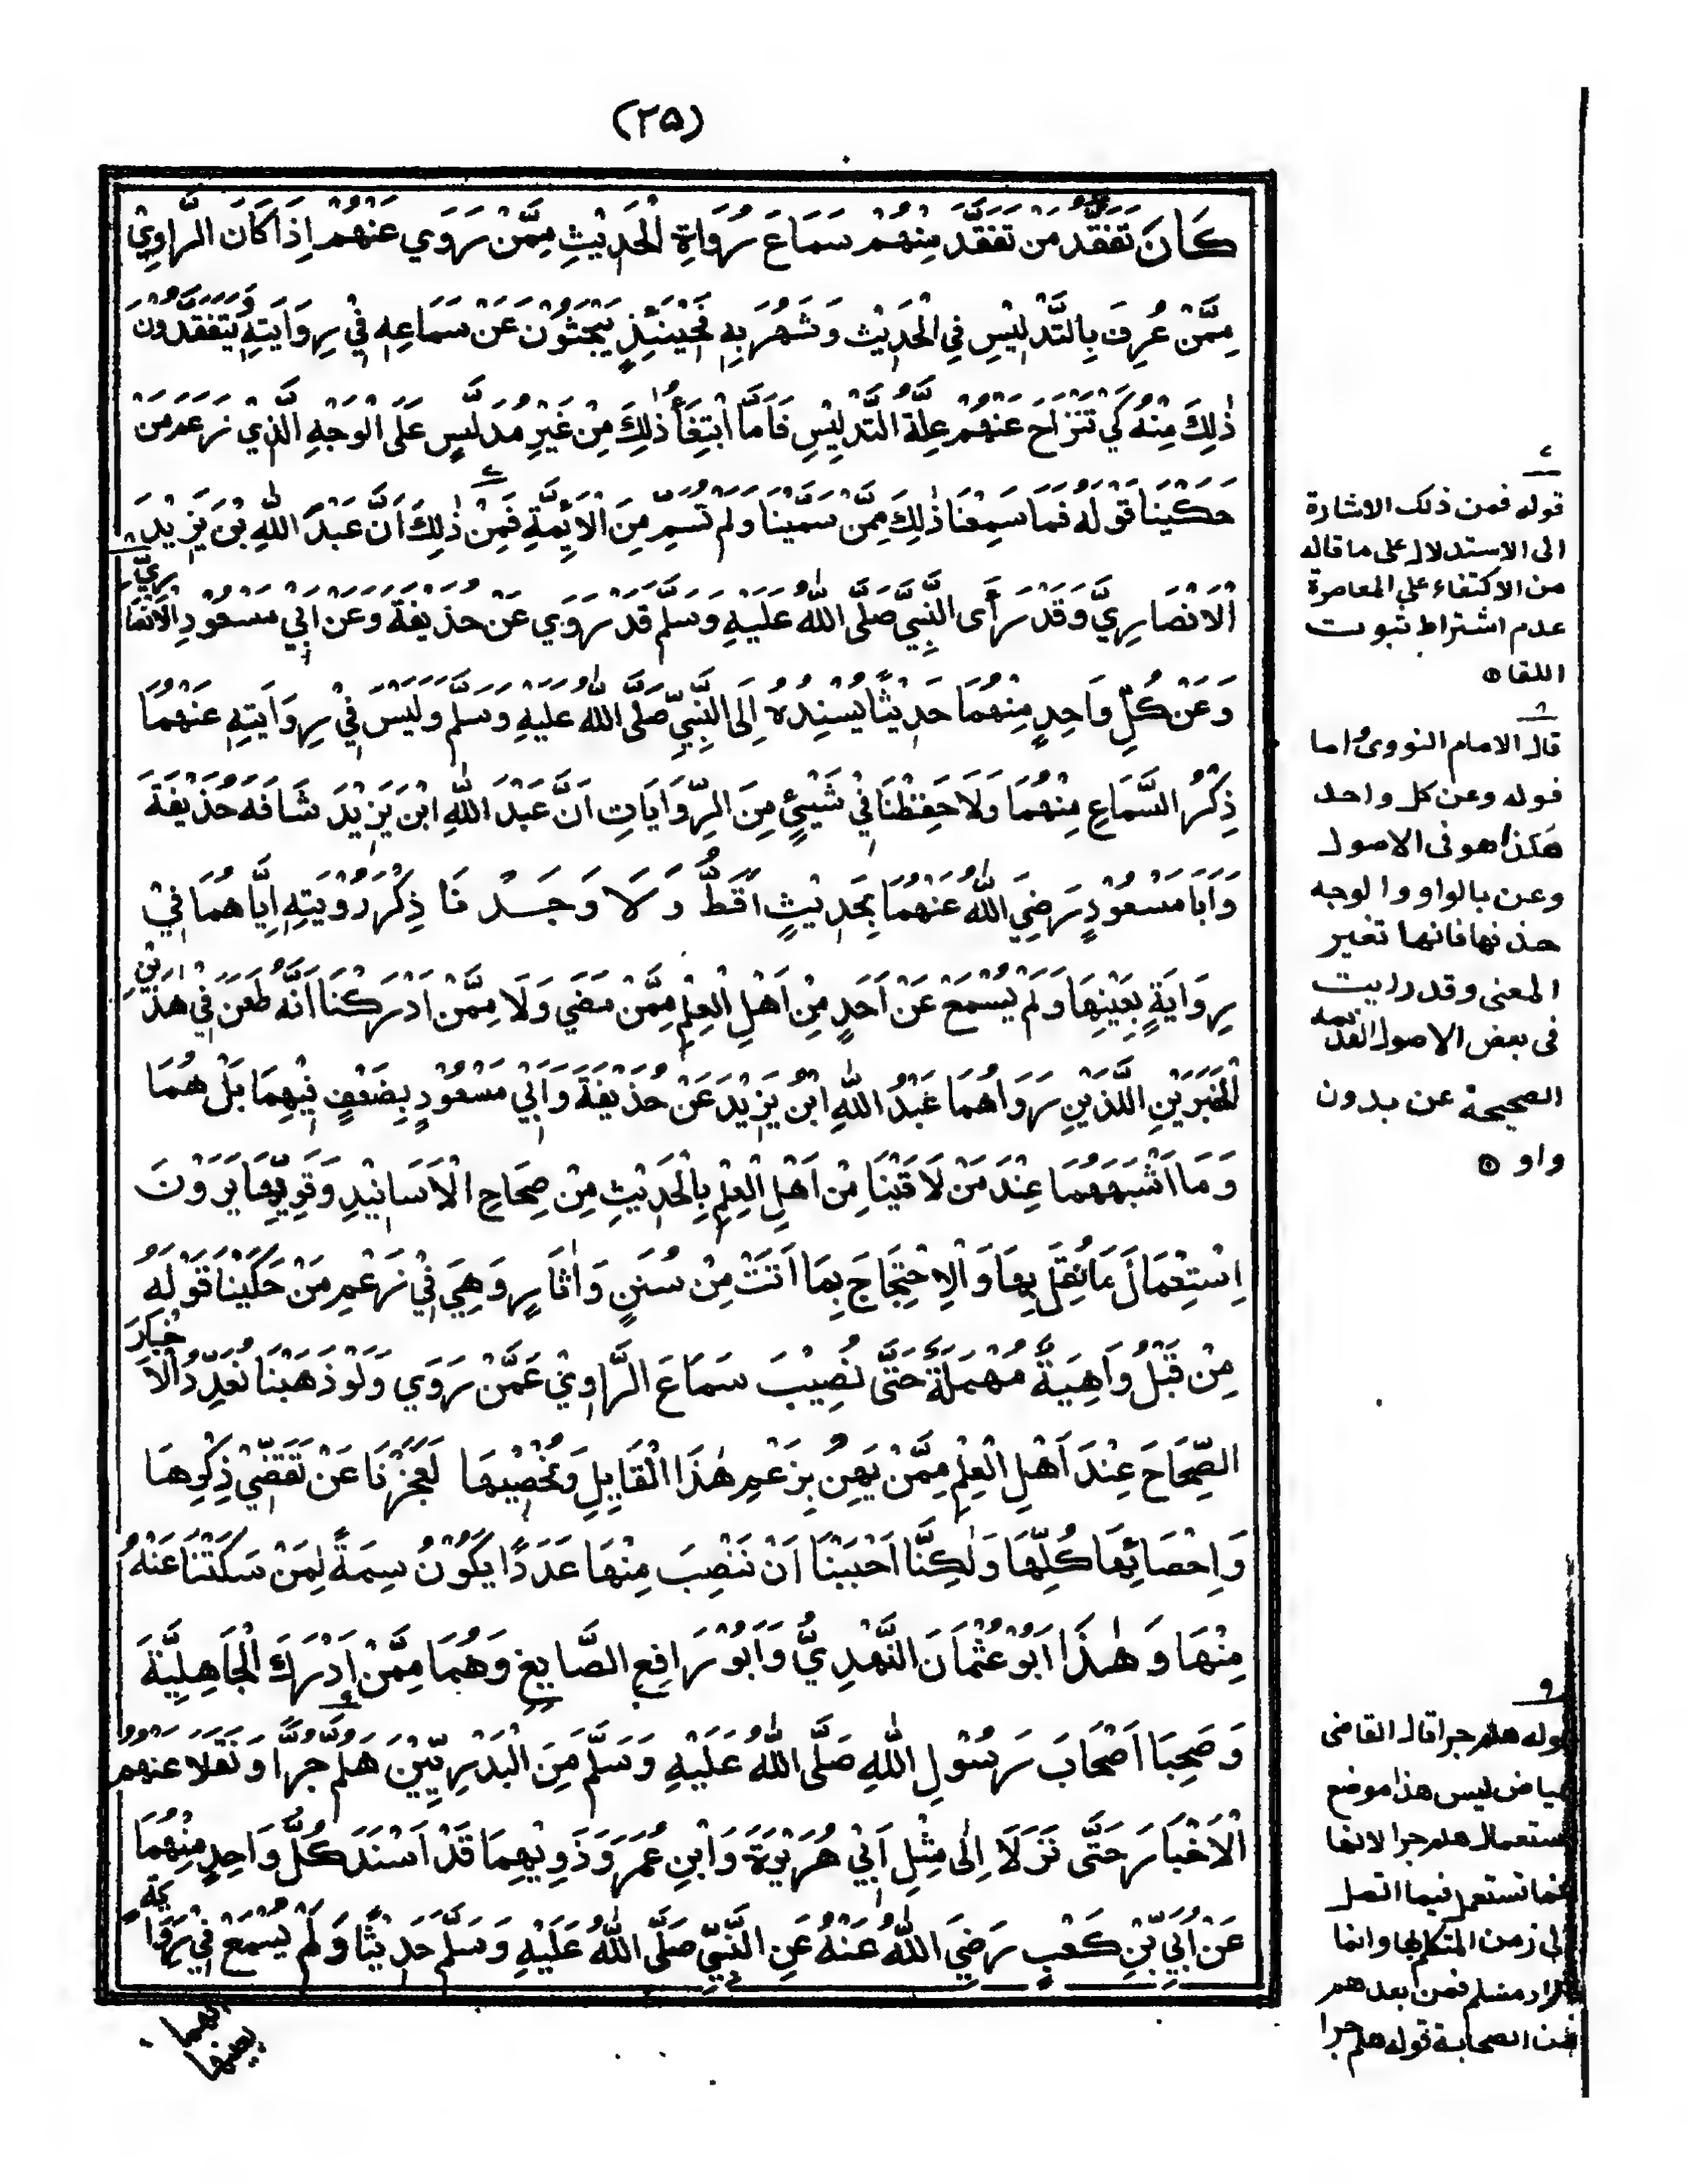 (٢٥)
كَانَ تَفَقُّدُ مَنْ تَفَقَّدَ مِنْهُمْ سَمَاعَ رُوَاةِ الْحَدِيْثِ مِمَّنْ رَوَي عَنْهُمْ اِذَا كَانَ الرَّاوِيْ
مِمَّنْ عُرِفَ بِالتَّدْلِيْسِ فِي الْحَدِيْثِ وَشُهِرَ بِهٖ فَحِيْنَئِذٍ يَبْحَثُوْنَ عَنْ سَمَاعِهٖ فِيْ رِوَايَتِهٖ وَيَتَفَقَّدُوْنَ
ذٰلِكَ مِنْهُ كَيْ تَنْزَاحَ عَنْهُمْ عِلَّةُ التَّدْلِيْسِ فَاَمَّا ابْتِغَاءُ ذٰلِكَ مِنْ غَيْرِ مُدَلِّسٍ عَلَى الْوَجْهِ الَّذِيْ زَعَمَ مَنْ
حَكَيْنَا قَوْلَهُ فَمَا سَمِعْنَا ذٰلِكَ مِمَّنْ سَمَّيْنَا وَلَمْ نُسَمِّ مِنَ الْاَئِمَّةِ فَمِنْ ذٰلِكَ اَنَّ عَبْدَ اللّٰهِ بْنَ يَزِيْدَ
الْاَنْصَارِيَّ وَقَدْ رَأَى النَّبِيَّ صَلَّى اللّٰهُ عَلَيْهِ وَسَلَّمَ قَدْ رَوَي عَنْ حُذَيْفَةَ وَعَنْ اَبِيْ مَسْعُوْدٍ الْاَنْصَارِيِّ
وَعَنْ كُلِّ وَاحِدٍ مِنْهُمَا حَدِيْثًا يُسْنِدُهُ اِلَى النَّبِيِّ صَلَّى اللّٰهُ عَلَيْهِ وَسَلَّمَ وَلَيْسَ فِيْ رِوَايَتِهٖ عَنْهُمَا
ذِكْرُ السَّمَاعِ مِنْهُمَا وَلَا حَفِظْنَا فِيْ شَيْئٍ مِنَ الرِّوَايَاتِ اَنَّ عَبْدَ اللّٰهِ ابْنَ يَزِيْدَ شَافَهَ حُذَيْفَةَ
وَاَبَا مَسْعُوْدٍ رَضِيَ اللّٰهُ عَنْهُمَا بِحَدِيْثٍ قَطُّ وَلَا وَجَدْنَا ذِكْرَ رُوْيَتِهٖ اِيَّاهُمَا فِيْ
رِوَايَةٍ بِعَيْنِهَا وَلَمْ يُسْمَعْ عَنْ اَحَدٍ مِنْ اَهْلِ الْعِلْمِ مِمَّنْ مَضَي وَلَا مِمَّنْ اَدْرَكْنَا اَنَّهُ طَعَنَ فِيْ هٰذَيْنِ
الْخَبَرَيْنِ اللَّذَيْنِ رَوَاهُمَا عَبْدُ اللّٰهِ ابْنُ يَزِيْدَ عَنْ حُذَيْفَةَ وَاَبِيْ مَسْعُوْدٍ بِضَعْفٍ فِيْهِمَا بَلْ هُمَا
وَمَا اَشْبَهَهُمَا عِنْدَ مَنْ لَاقَيْنَا مِنْ اَهْلِ الْعِلْمِ بِالْحَدِيْثِ مِنْ صِحَاحِ الْاَسَانِيْدِ وَقَوِيِّهَا يَرَوْنَ
اِسْتِعْمَالَ مَا نُقِلَ بِهَا وَالْاِحْتِجَاجَ بِمَا اَتَتْ مِنْ سُنَنٍ وَاٰثَارٍ وَهِيَ فِيْ زَعْمِ مَنْ حَكَيْنَا قَوْلَهُ
مِنْ قَبْلُ وَاهِيَةٌ مُهْمَلَةٌ حَتَّى نُصِيْبَ سَمَاعَ الرَّاوِيْ عَمَّنْ رَوَي وَلَوْ ذَهَبْنَا نُعَدِّدُ الْاَخْبَارَ
الصِّحَاحَ عِنْدَ اَهْلِ الْعِلْمِ مِمَّنْ يَهِنُ بِزَعْمِ هٰذَا الْقَايِلِ وَنُحْصِيْهَا لَعَجَزْنَا عَنْ تَقَصِّيْ ذِكْرِهَا
وَاِحْصَائِهَا كُلِّهَا وَلٰكِنَّا اَحْبَبْنَا اَنْ نَنْصِبَ مِنْهَا عَدَدًا يَكُوْنُ سِمَةً لِمَنْ سَكَتْنَا عَنْهُ
مِنْهَا وَهٰذَا اَبُوْ عُثْمَانَ النَّهْدِيُّ وَاَبُوْ رَافِعٍ الصَّايِغُ وَهُمَا مِمَّنْ اَدْرَكَ الْجَاهِلِيَّةَ
وَصَحِبَا اَصْحَابَ رَسُوْلِ اللّٰهِ صَلَّى اللّٰهُ عَلَيْهِ وَسَلَّمَ مِنَ الْبَدْرِيِّيْنَ هَلُمَّ جَرًّا وَنَقَلَا عَنْهُمُ
الْاَخْبَارَ حَتَّى نَزَلَا اِلٰى مِثْلِ اَبِيْ هُرَيْرَةَ وَابْنِ عُمَرَ وَذَوِيْهِمَا قَدْ اَسْنَدَ كُلُّ وَاحِدٍ مِنْهُمَا
عَنْ اُبَيِّ بْنِ كَعْبٍ رَضِيَ اللّٰهُ عَنْهُ عَنِ النَّبِيِّ صَلَّى اللّٰهُ عَلَيْهِ وَسَلَّمَ حَدِيْثًا وَلَمْ يُسْمَعْ فِيْ رِوَايَةٍ
بعينها
قوله فمن ذلك الاشارة
الى الاستدلال على ما قاله
من الاكتفاء على المعاصرة
عدم اشتراط ثبوت
اللقا
قال الامام النووي اما
قوله وعن كل واحد
هكذا هو فى الاصول
وعن بالواو والوجه
حذفها فانها تغير
المعنى وقد رايت
فى بعض الاصول القديمة
الصحيحة عن بدون
واو
قوله هلم جرا قال القاضى
عياض ليس هذا موضع
استعمال هلم جرا لانها
انما تستعمل فيما اتصل
الى زمن المتكلم بها وانما
اراد مسلم فمن بعدهم
من الصحابة قوله هلم جرا